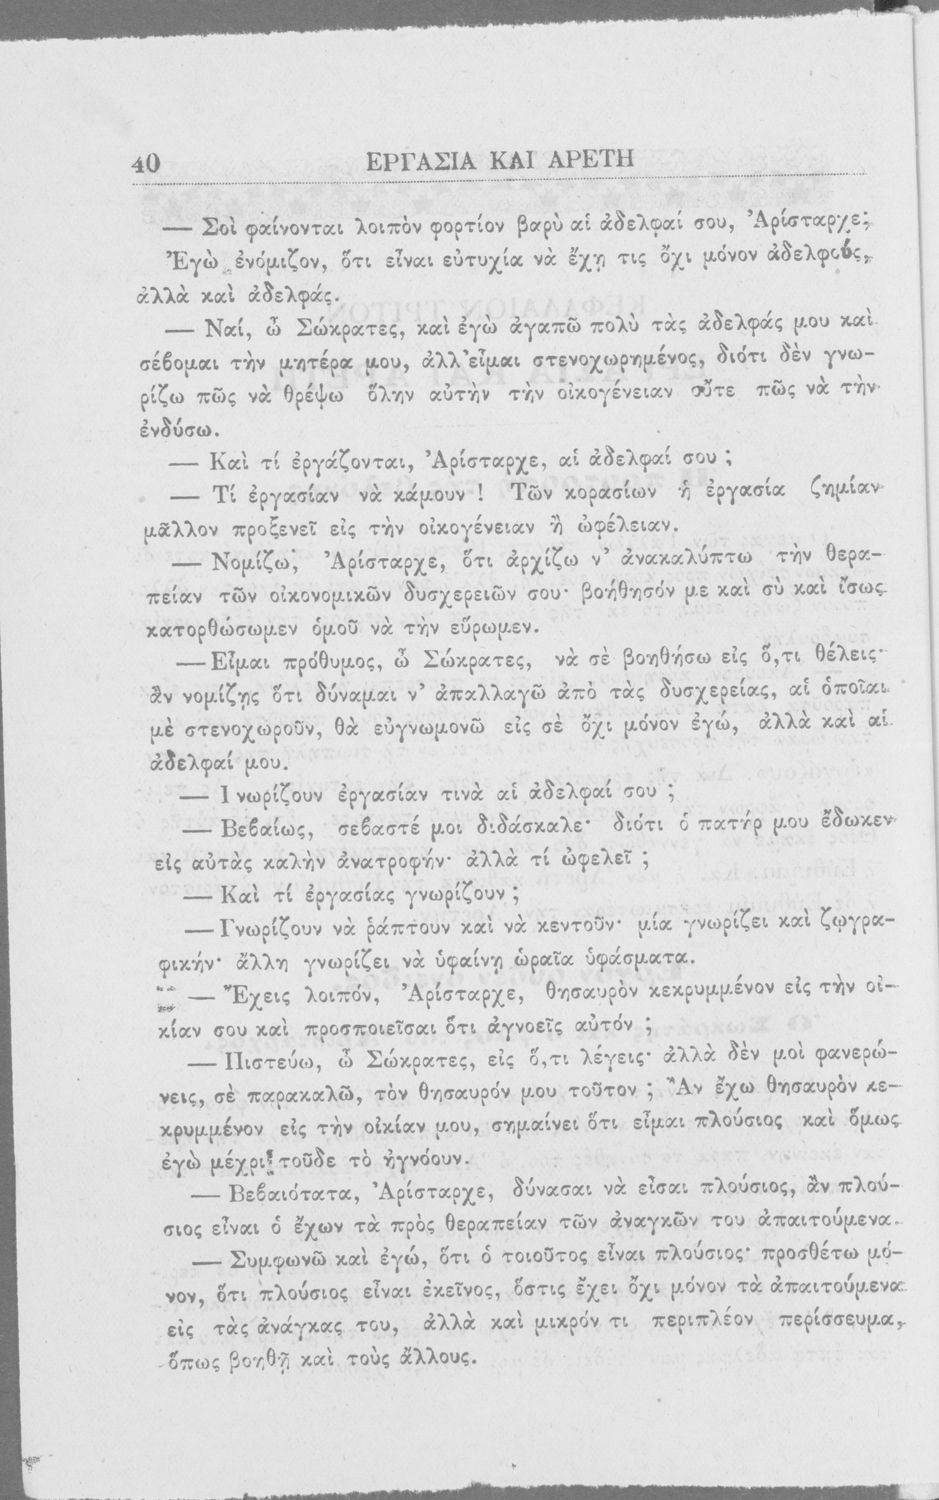 40 ΕΡΓΑΣΙΑ ΚΑΙ ΑΡΕΤΗ
— Σοὶ φαίνονται λοιπὸν φορτίον βαρὺ αἱ ἀδελφαί σου, Ἀρίσταρχε;
Ἐγὼ ἐνόμιζον, ὅτι εἶναι εὐτυχία νὰ ἔχῃ τις ὄχι μόνον ἀδελφούς,
ἀλλὰ καὶ ἀδελφάς.
— Ναί, ὦ Σώκρατες, καὶ ἐγὼ ἀγαπῶ πολὺ τὰς ἀδελφάς μου καὶ
σέβομαι τὴν μητέρα μου, ἀλλ' εἶμαι στενοχωρημένος, διότι δὲν γνω-
ρίζω πῶς νὰ θρέψω ὅλην αὐτὴν τὴν οἰκογένειαν οὔτε πῶς νὰ τὴν
ἐνδύσω.
— Καὶ τί ἐργάζονται, Ἀρίσταρχε, αἱ ἀδελφαί σου ;
— Τί ἐργασίαν νὰ κάμουν ! Τῶν κορασίων ἡ ἐργασία ζημίαν
μᾶλλον προξενεῖ εἰς τὴν οἰκογένειαν ἢ ὠφέλειαν.
— Νομίζω, Ἀρίσταρχε, ὅτι ἀρχίζω ν' ἀνακαλύπτω τὴν θερα-
πείαν τῶν οἰκονομικῶν δυσχερειῶν σου· βοήθησόν με καὶ σὺ καὶ ἴσως
κατορθώσωμεν ὁμοῦ νὰ τὴν εὕρωμεν.
— Εἶμαι πρόθυμος, ὦ Σώκρατες, νὰ σὲ βοηθήσω εἰς ὅ,τι θέλεις·
ἂν νομίζῃς ὅτι δύναμαι ν' ἀπαλλαγῶ ἀπὸ τὰς δυσχερείας, αἱ ὁποῖαι
μὲ στενοχωροῦν, θὰ εὐγνωμονῶ εἰς σὲ ὄχι μόνον ἐγώ, ἀλλὰ καὶ αἱ
ἀδελφαί μου.
— Γνωρίζουν ἐργασίαν τινὰ αἱ ἀδελφαί σου ;
— Βεβαίως, σεβαστέ μοι διδάσκαλε· διότι ὁ πατήρ μου ἔδωκεν
εἰς αὐτὰς καλὴν ἀνατροφήν· ἀλλὰ τί ὠφελεῖ ;
— Καὶ τί ἐργασίας γνωρίζουν ;
— Γνωρίζουν νὰ ῥάπτουν καὶ νὰ κεντοῦν· μία γνωρίζει καὶ ζῳγρα-
φικήν· ἄλλη γνωρίζει νὰ ὑφαίνῃ ὡραῖα ὑφάσματα.
— Ἔχεις λοιπόν, Ἀρίσταρχε, θησαυρὸν κεκρυμμένον εἰς τὴν οἰ-
κίαν σου καὶ προσποιεῖσαι ὅτι ἀγνοεῖς αὐτόν ;
— Πιστεύω, ὦ Σώκρατες, εἰς ὅ,τι λέγεις· ἀλλὰ δὲν μοὶ φανερώ-
νεις, σὲ παρακαλῶ, τὸν θησαυρόν μου τοῦτον ; Ἂν ἔχω θησαυρὸν κε-
κρυμμένον εἰς τὴν οἰκίαν μου, σημαίνει ὅτι εἶμαι πλούσιος καὶ ὅμως
ἐγὼ μέχρι τοῦδε τὸ ἠγνόουν.
— Βεβαιότατα, Ἀρίσταρχε, δύνασαι νὰ εἶσαι πλούσιος, ἂν πλού-
σιος εἶναι ὁ ἔχων τὰ πρὸς θεραπείαν τῶν ἀναγκῶν του ἀπαιτούμενα.
— Συμφωνῶ καὶ ἐγώ, ὅτι ὁ τοιοῦτος εἶναι πλούσιος· προσθέτω μό-
νον, ὅτι πλούσιος εἶναι ἐκεῖνος, ὅστις ἔχει ὄχι μόνον τὰ ἀπαιτούμενα
εἰς τὰς ἀνάγκας του, ἀλλὰ καὶ μικρόν τι περιπλέον περίσσευμα,
ὅπως βοηθῇ καὶ τοὺς ἄλλους.